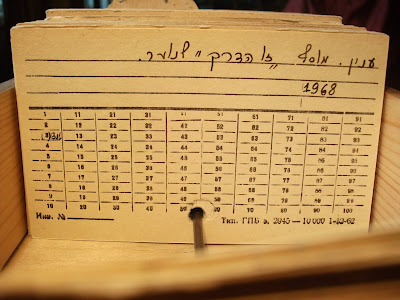 ענין. מוסף "זו הדרך" לנוער.
1968
1 11 21 31 41 51 61 71 81 91
2 12 22 32 42 52 62 72 82 92
3 13 23 33 43 53 63 73 83 93
4 14 24 34 44 54 64 74 84 94
5 15 25 35 45 55 65 75 85 95
6 16 26 36 46 56 66 76 86 96
7 17 27 37 47 57 67 77 87 97
8 18 28 38 48 58 68 78 88 98
9 19 29 39 49 59 69 79 89 99
10 20 30 40 50 60 70 80 90 100
Инв. № Тип. ГПБ з. 2845 — 10 000